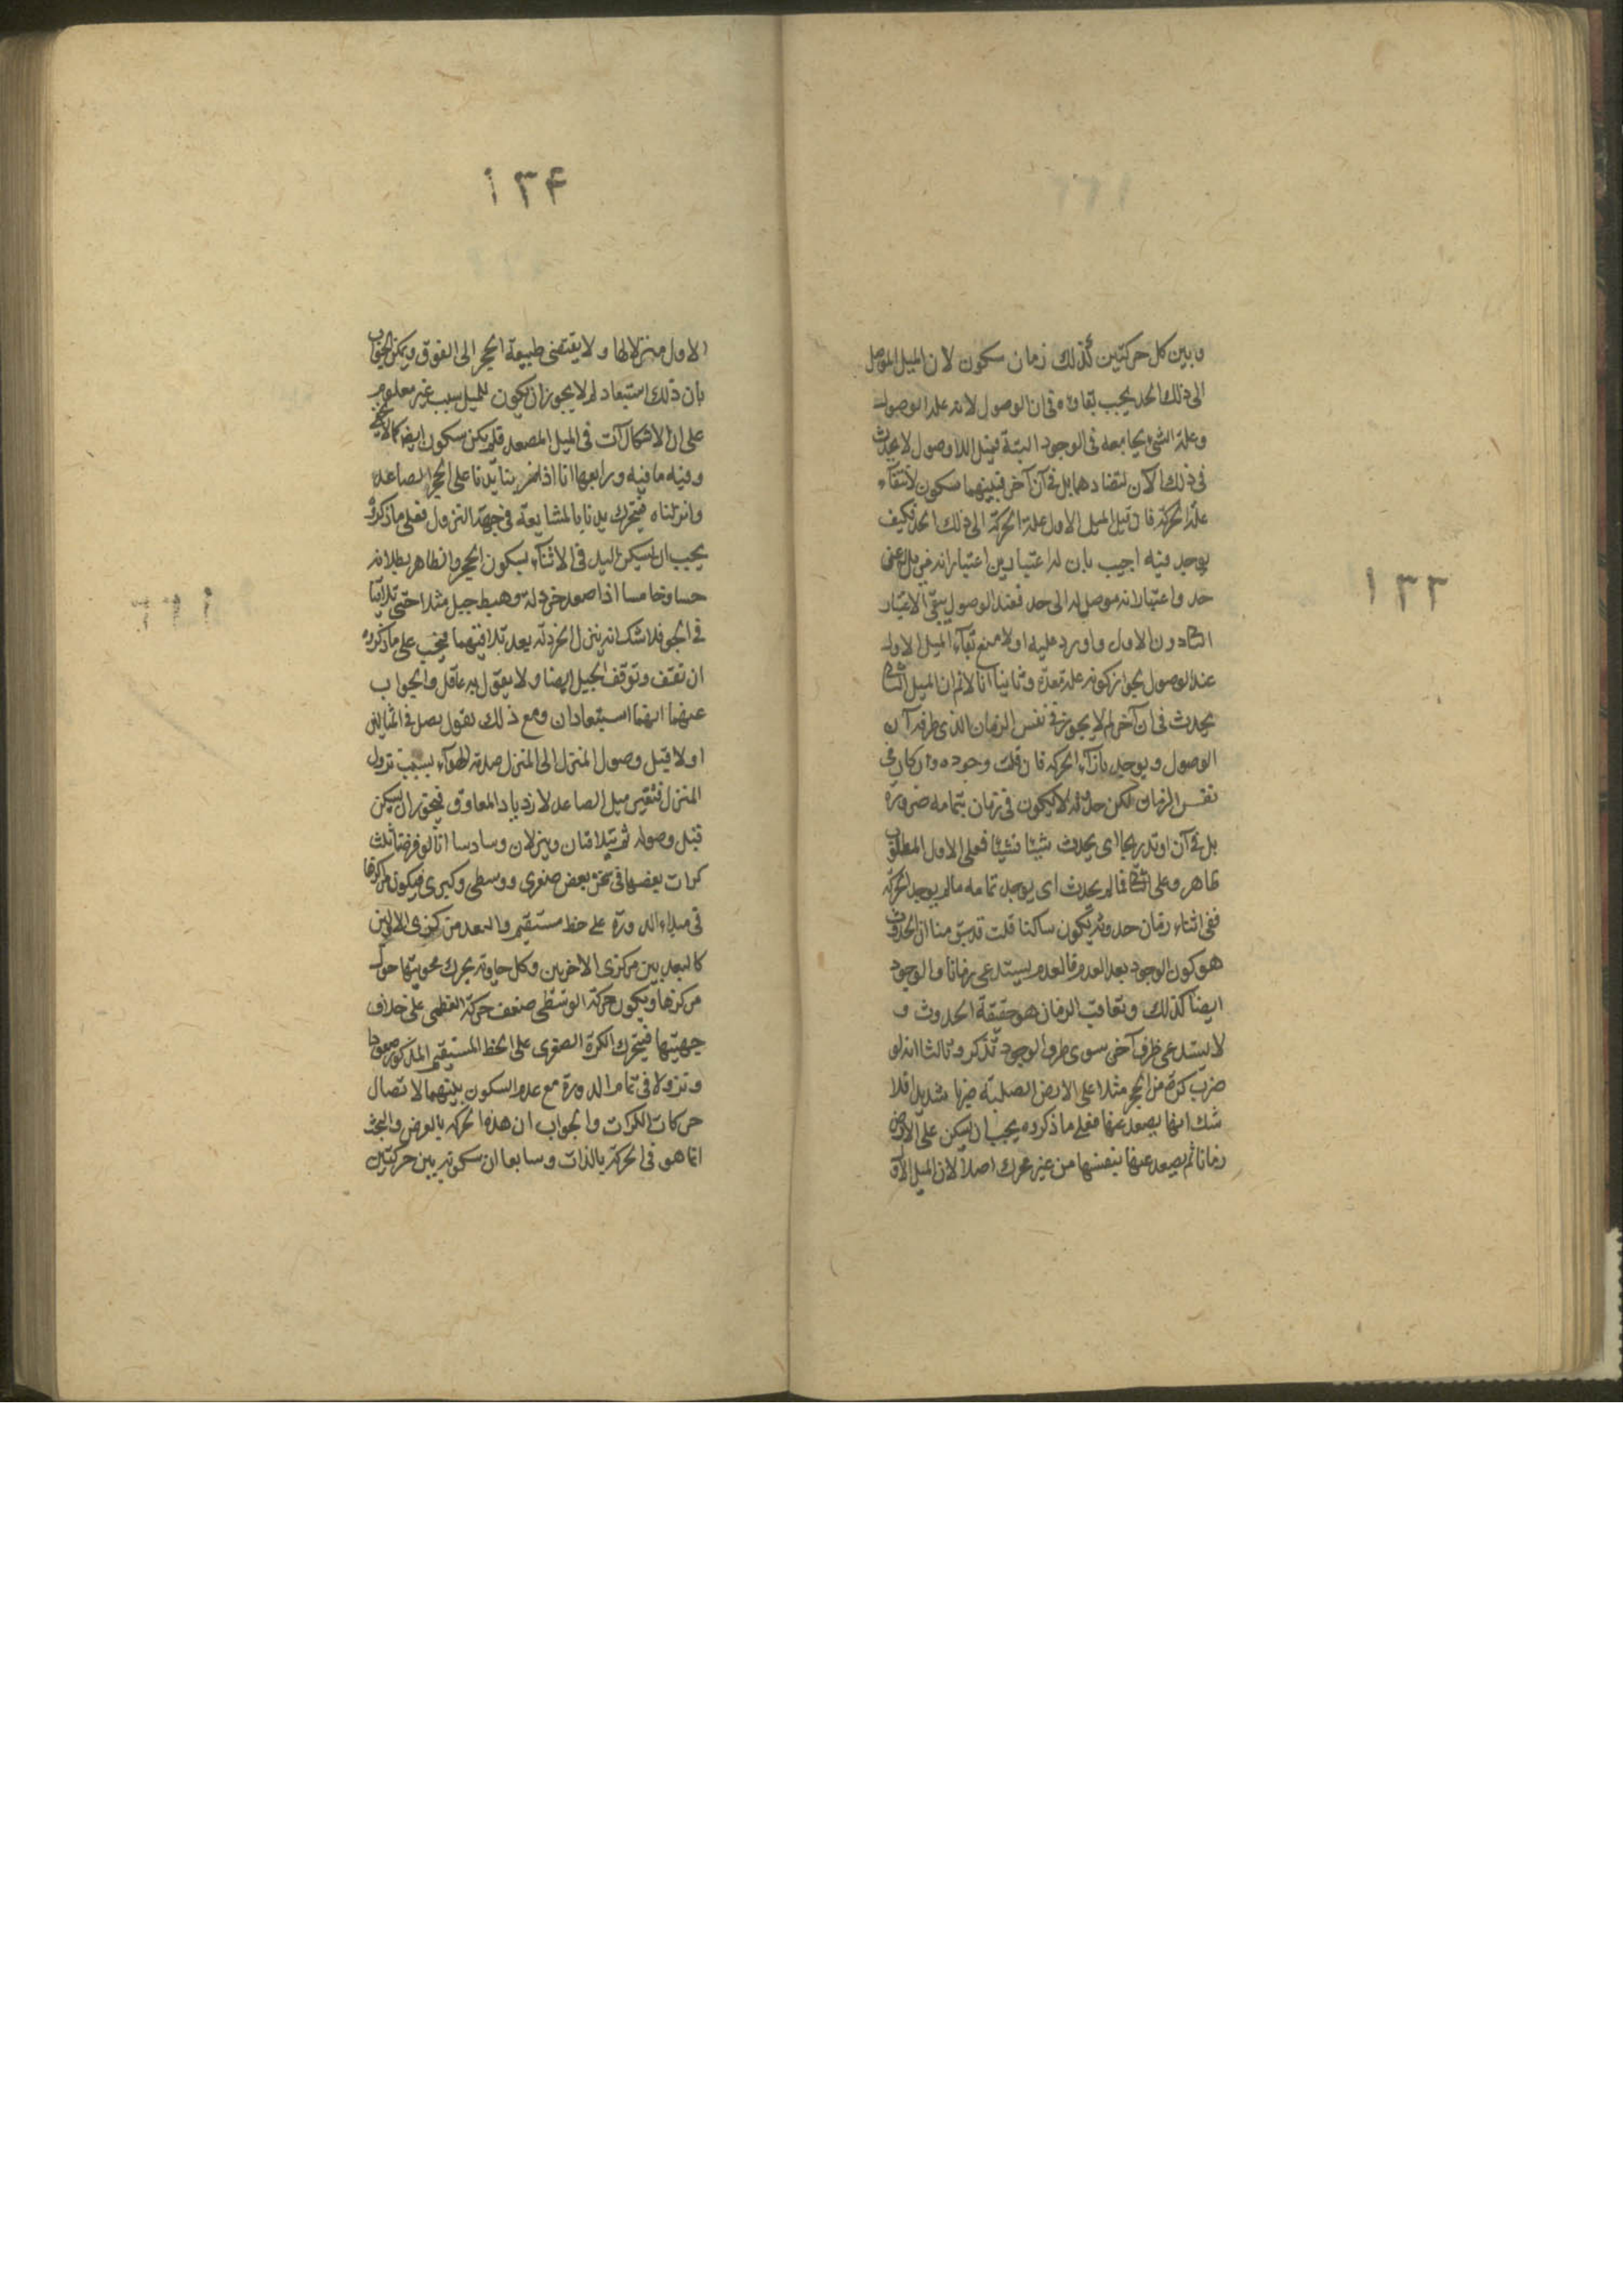 ١٣٣
وبين كل حركتين كذلك زمان سكون لان الميل الموصل
الى ذلك الحد يجب بقاؤه فى ان الوصول لانه علة الوصول
وعلة الشئ يجامعه فى الوجود البتة فميل اللاوصول لا يحدث
فى ذلك الآن لتضادهما بل فى آن آخر فبينهما سكون لانتفاء
علة الحركة فان قيل الميل الاول علة الحركة الى ذلك الحد فكيف
يوجد فيه اجيب بان له اعتبارين اعتبار انه مزيل عن
حد واعتبار انه موصل له الى حد فعند الوصول يبقى الاعتبار
الثانى دون الاول واورد عليه اولا منع بقاء الميل الاول
عند الوصول لجواز كونه علة معدة وثانيا انا لا نم ان الميل الثانى
يحدث فى ان آخر لم لا يجوز فى نفس الزمان الذى طرفه آن
الوصول ويوجد بازاء الحركة فان قلت وجوده وان كان فى
نفس الزمان لكن حدوثه لا يكون فى زمان بتمامه ضرورة
بل فى آن او تدريجا اى يحدث شيئا فشيئا فعلى الاول المطلوب
ظاهر وعلى الثانى فما لم يحدث اى يوجد تمامه ما لم يوجد الحركة
ففى اثناء زمان حدوثه يكون ساكنا قلت قد سبق منا ان الحدوث
هو كون الوجود بعد العدم فالعدم يستدعى زمانا والوجود
ايضا كذلك وتعاقب الزمان هو حقيقة الحدوث و
لا يستدعى ظرفا آخر سوى ظرف الوجود تذكر وثالثا انه لو
ضرب كرة من الحجر مثلا على الارض الصلبة ضربا شديدا فلا
شك انها يصعد عنها فعلى ما ذكروه يجب ان يسكن على الارض
زمانا ثم يصعد عنها بنفسها من غير محرك اصلا لان الميل الاو
١٣۴
الاول منزلا لها ولا يقتضى طبيعة الحجر الى الفوق ويمكن الجواب
بان ذلك استبعاد لم لا يجوز ان يكون للميل سبب غير معلوم
على ان الاشكال آت فى الميل المصعد فلم يكن سكون ايضا كما لا يخفى
وفيه ما فيه ورابعها انا اذا ضربنا يدنا على الحجر الصاعد
وانزلناه فيتحرك يدنا بالمشايعة فى جهة النزول فعلى ما ذكروه
يجب ان يسكن اليد فى الاثناء لسكون الحجر والظاهر بطلانه
حسا وخامسا اذا صعد خردلة وهبط جبل مثلا حتى تلاقيا
فى الجو فلا شك انه ينزل الخردلة بعد تلاقيهما فيجب على ما ذكروه
ان تقف وتوقف الجبل ايضا ولا يقول به عاقل والجواب
عنهما انهما استبعادان ومع ذلك نقول يصل فى المثالين
اولا قبل وصول المنزل الى المنزل صدمة الهواء بسبب نزول
المنزل فتقسر ميل الصاعد لازدياد المعاوق فيجوز ان يسكن
قبل وصوله ثم يتلاقيان وينزلان وسادسا انا لو فرضنا ثلث
كرات بعضها فى ثخن بعض صغرى ووسطى وكبرى فيكون مراكزها
فى مبداء الدورة على خط مستقيم والبعد من مركزى الاوليين
كالبعد بين مركزى الاخريين وكل حاوية يحرك محويتها حول
مركزها ويكون حركة الوسطى ضعف حركة العظمى على خلاف
جهتها فيتحرك الكرة الصغرى على الخط المستقيم المذكور صعودا
ونزولا فى تمام الدورة مع عدم السكون بينهما لاتصال
حركات الكرات والجواب ان هذه الحركة بالعرض والبحث
انما هو فى الحركة بالذات وسابعا ان سكونه بين حركتين